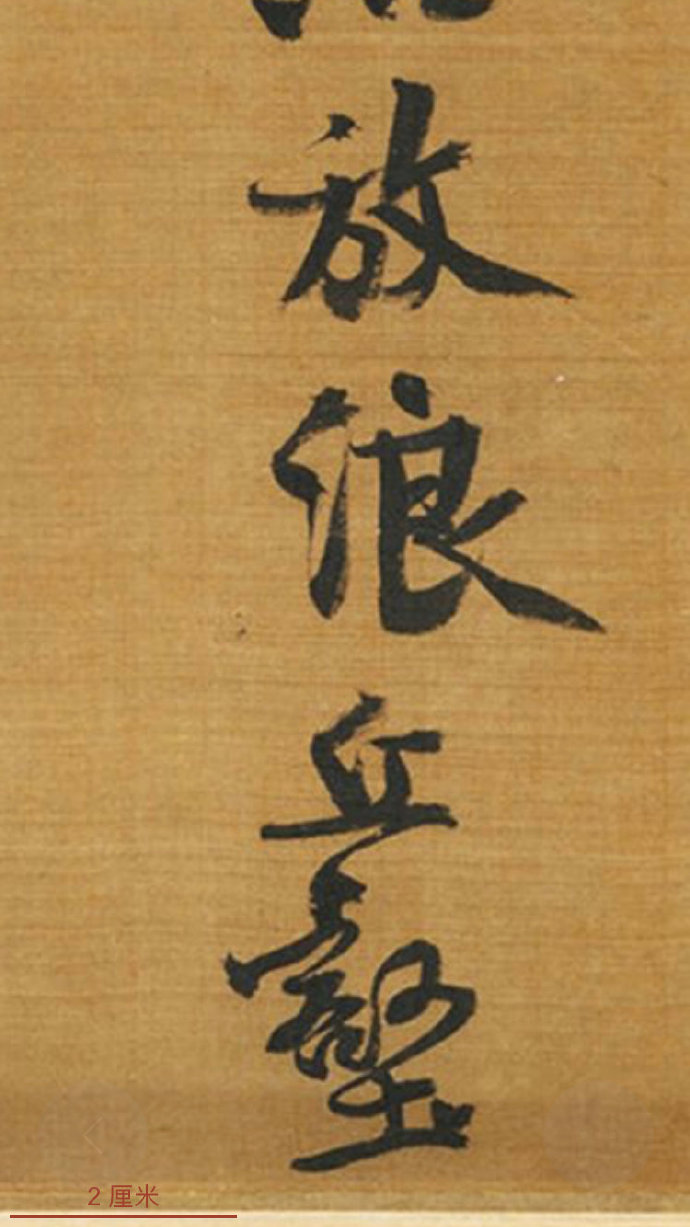 放浪丘壑
2 厘米